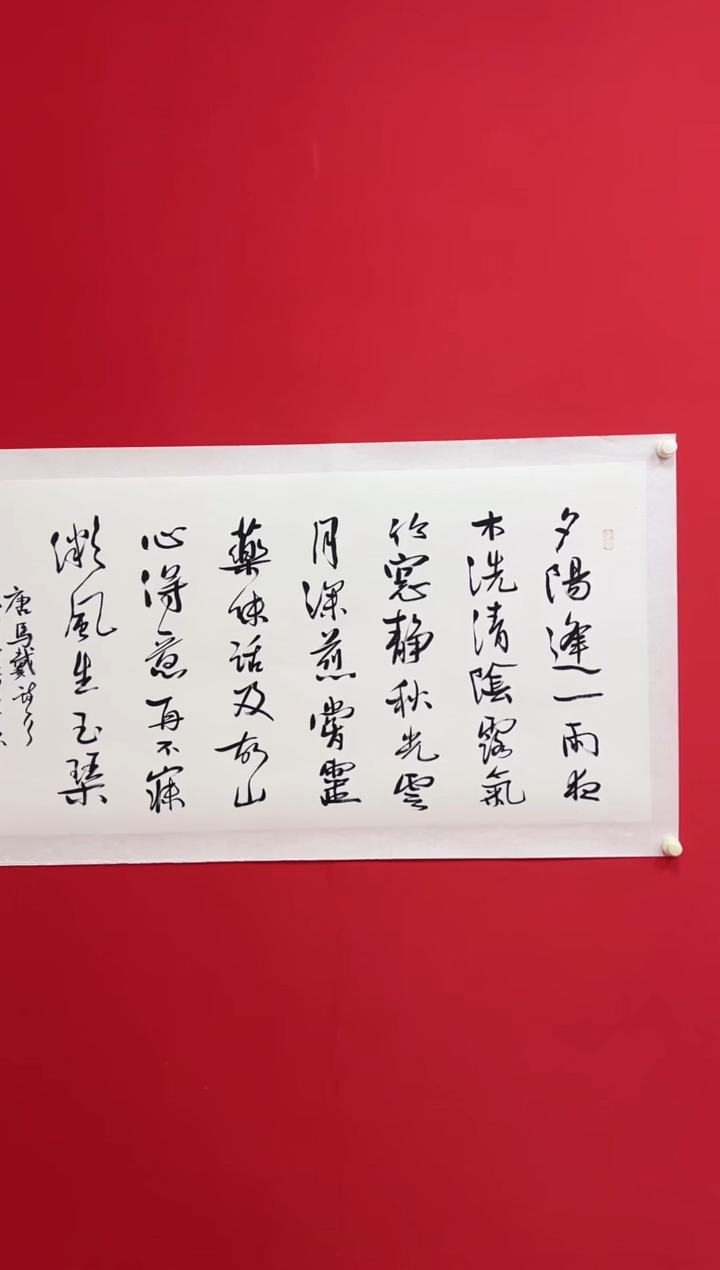 夕陽逢一雨夜
木洗清陰露氣
竹窓靜秋光雲
月深煎嘗靈
藥味話及故山
心得意再不寐
微風生玉琴
唐馬戴詩